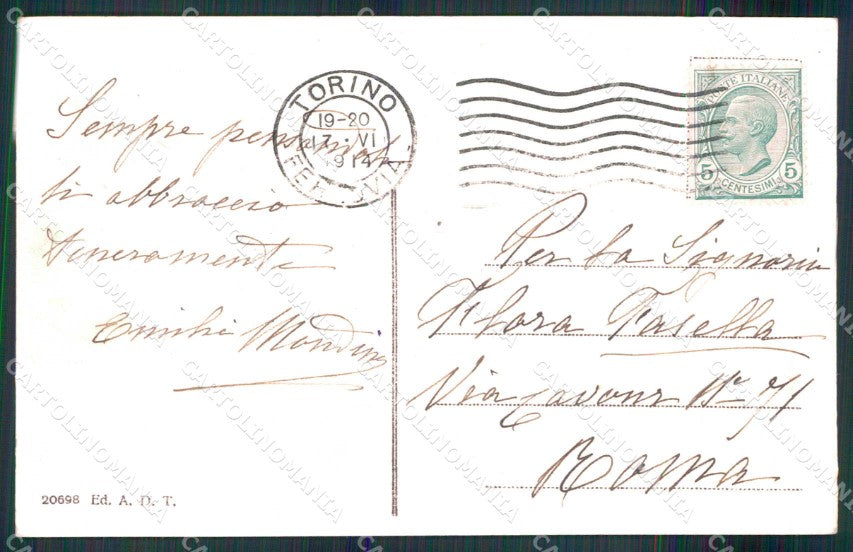 Sempre pensandoti
ti abbraccio
teneramente
Emilia Mondino
20698 Ed. A. D. T.
TORINO
19-20
17 · VI
1914
FERROVIA
POSTE ITALIANE
5 CENTESIMI 5
Per la Signorina
Flora Tasella
Via Cavour No 71
Roma
CARTOLINOMANIA